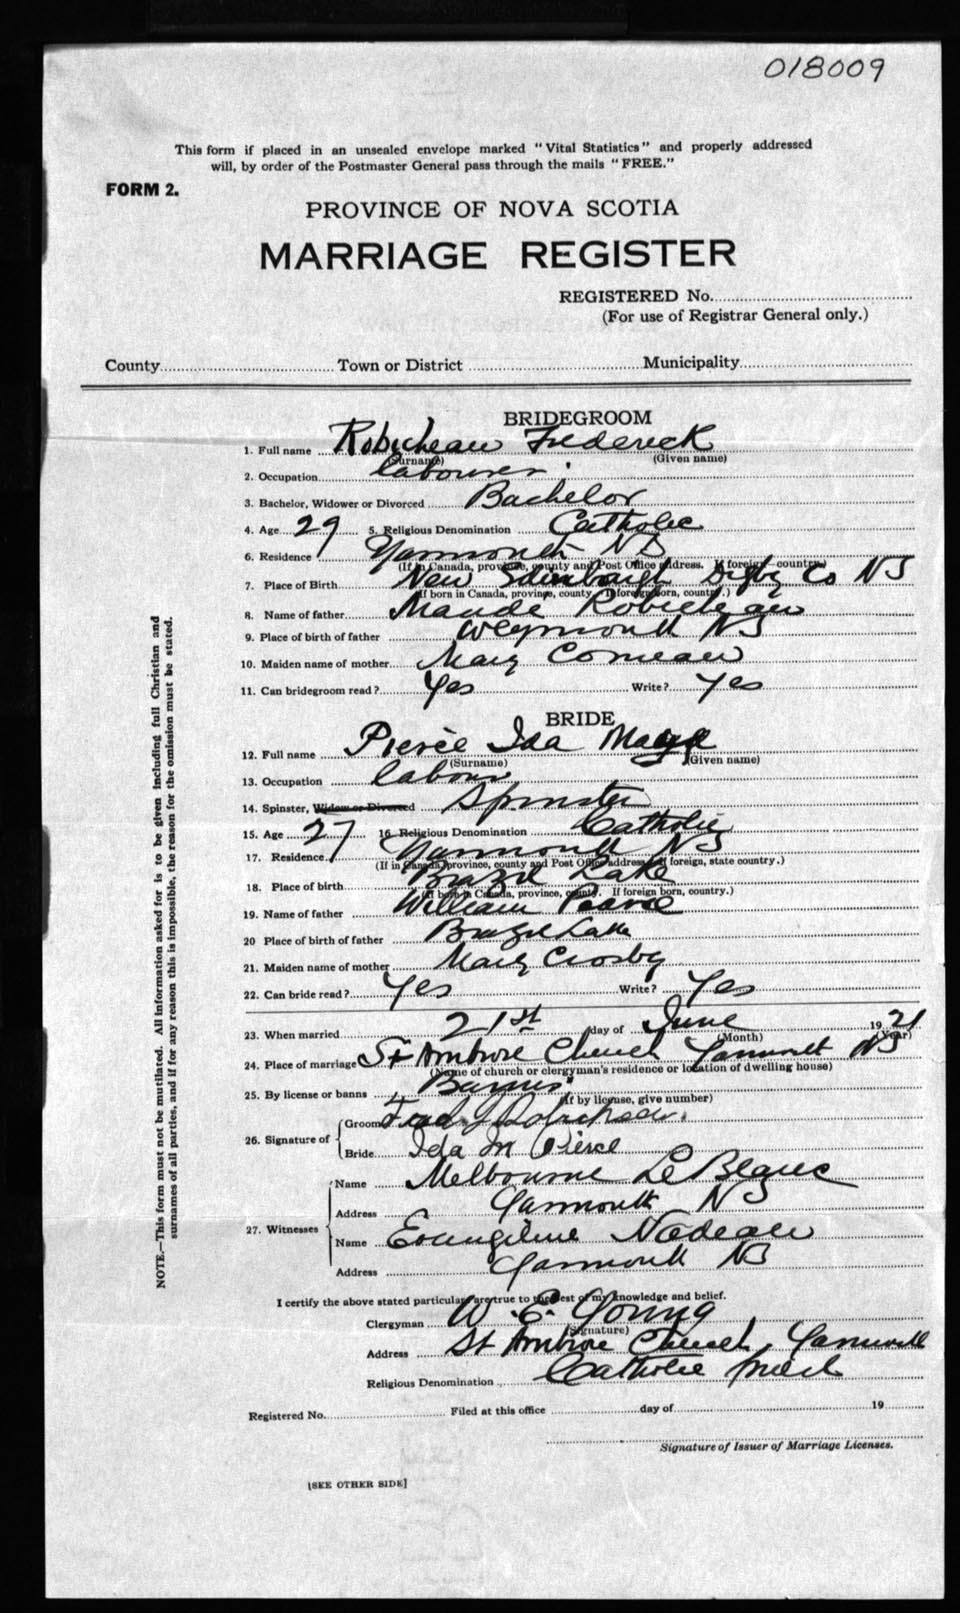 018009
This form if placed in an unsealed envelope marked "Vital Statistics" and properly addressed
will, by order of the Postmaster General pass through the mails "FREE."
FORM 2.
PROVINCE OF NOVA SCOTIA
MARRIAGE REGISTER
REGISTERED No.
(For use of Registrar General only.)
County Town or District Municipality
BRIDEGROOM
1. Full name Robicheau Frederick
(Surname) (Given name)
2. Occupation labourer
3. Bachelor, Widower or Divorced Bachelor
4. Age 29 5. Religious Denomination Catholic
6. Residence Yarmouth NS
(If in Canada, province, county and Post Office address. If foreign—country)
7. Place of Birth New Edinburgh Digby Co NS
(If born in Canada, province, county. If foreign born, country.)
8. Name of father Maude Robicheau
9. Place of birth of father Weymouth NS
10. Maiden name of mother Mary Comeau
11. Can bridegroom read? Yes Write? Yes
BRIDE
12. Full name Pierce Ida Maye
(Surname) (Given name)
13. Occupation labour
14. Spinster, Widow or Divorced Spinster
15. Age 27 16 Religious Denomination Catholic
17. Residence Yarmouth NS
(If in Canada, province, county and Post Office address. If foreign, state country.)
18. Place of birth Brazil Lake
(If born in Canada, province, county. If foreign born, country.)
19. Name of father William Pearce
20 Place of birth of father Brazil Lake
21. Maiden name of mother Mary Crosby
22. Can bride read? Yes Write? Yes
23. When married 21st day of June 1921
(Month) (Year)
24. Place of marriage St Ambrose Church Yarmouth NS
(Name of church or clergyman's residence or location of dwelling house)
25. By license or banns Banns
(If by license, give number)
26. Signature of Groom Fred J Robicheau.
Bride Ida M Pierce
27. Witnesses Name Melbourne LeBlanc
Address Yarmouth NS
Name Evangeline Nadeau
Address Yarmouth NS
I certify the above stated particulars are true to the best of my knowledge and belief.
Clergyman W. E. Young
(Signature)
Address St Ambrose Church, Yarmouth
Religious Denomination Catholic Priest
Registered No. Filed at this office day of 19
Signature of Issuer of Marriage Licenses.
[SEE OTHER SIDE]
NOTE.—This form must not be mutilated. All information asked for is to be given including full Christian and
surnames of all parties, and if for any reason this is impossible, the reason for the omission must be stated.